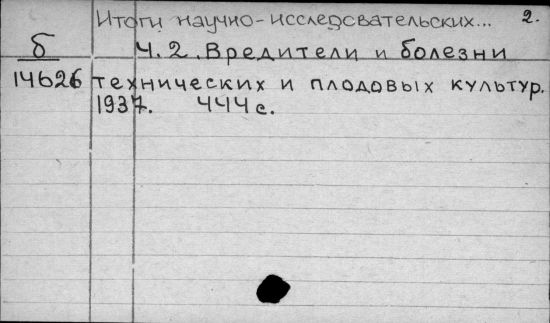 Итоги научно-исследовательских... 2.
б Ч. 2. Вредители и болезни
14626 технических и плодовых культур.
1937. 444 с.